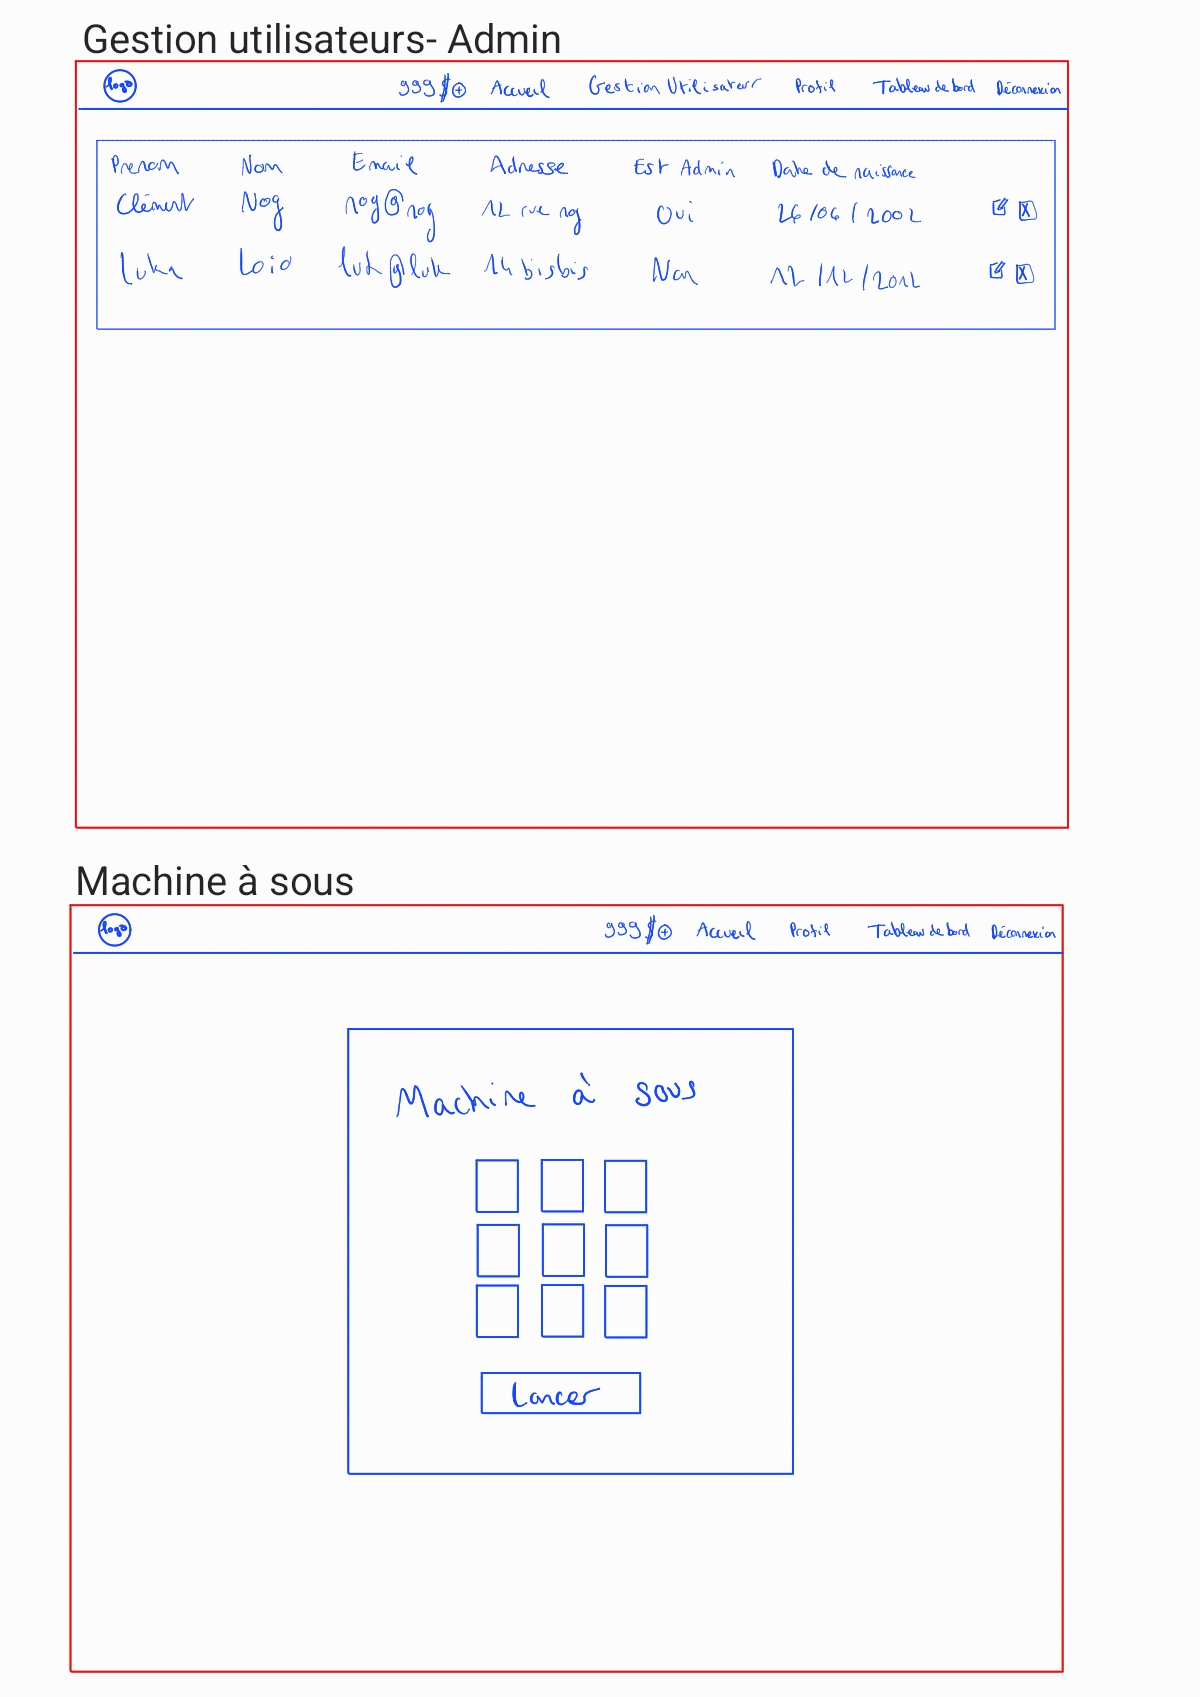 Gestion utilisateurs- Admin
logo 999$ Accueil Gestion Utilisateur Profil Tableau de bord Déconnexion
Prenom Nom Email Adresse Est Admin Date de naissance
Clément Nog nog@nog 12 rue nog Oui 26/06/2002 X
Luka Loio luk@luk 14 bisbis Non 12/12/2012 X
Machine à sous
logo 999$ Accueil Profil Tableau de bord Déconnexion
Machine à sous
Lancer